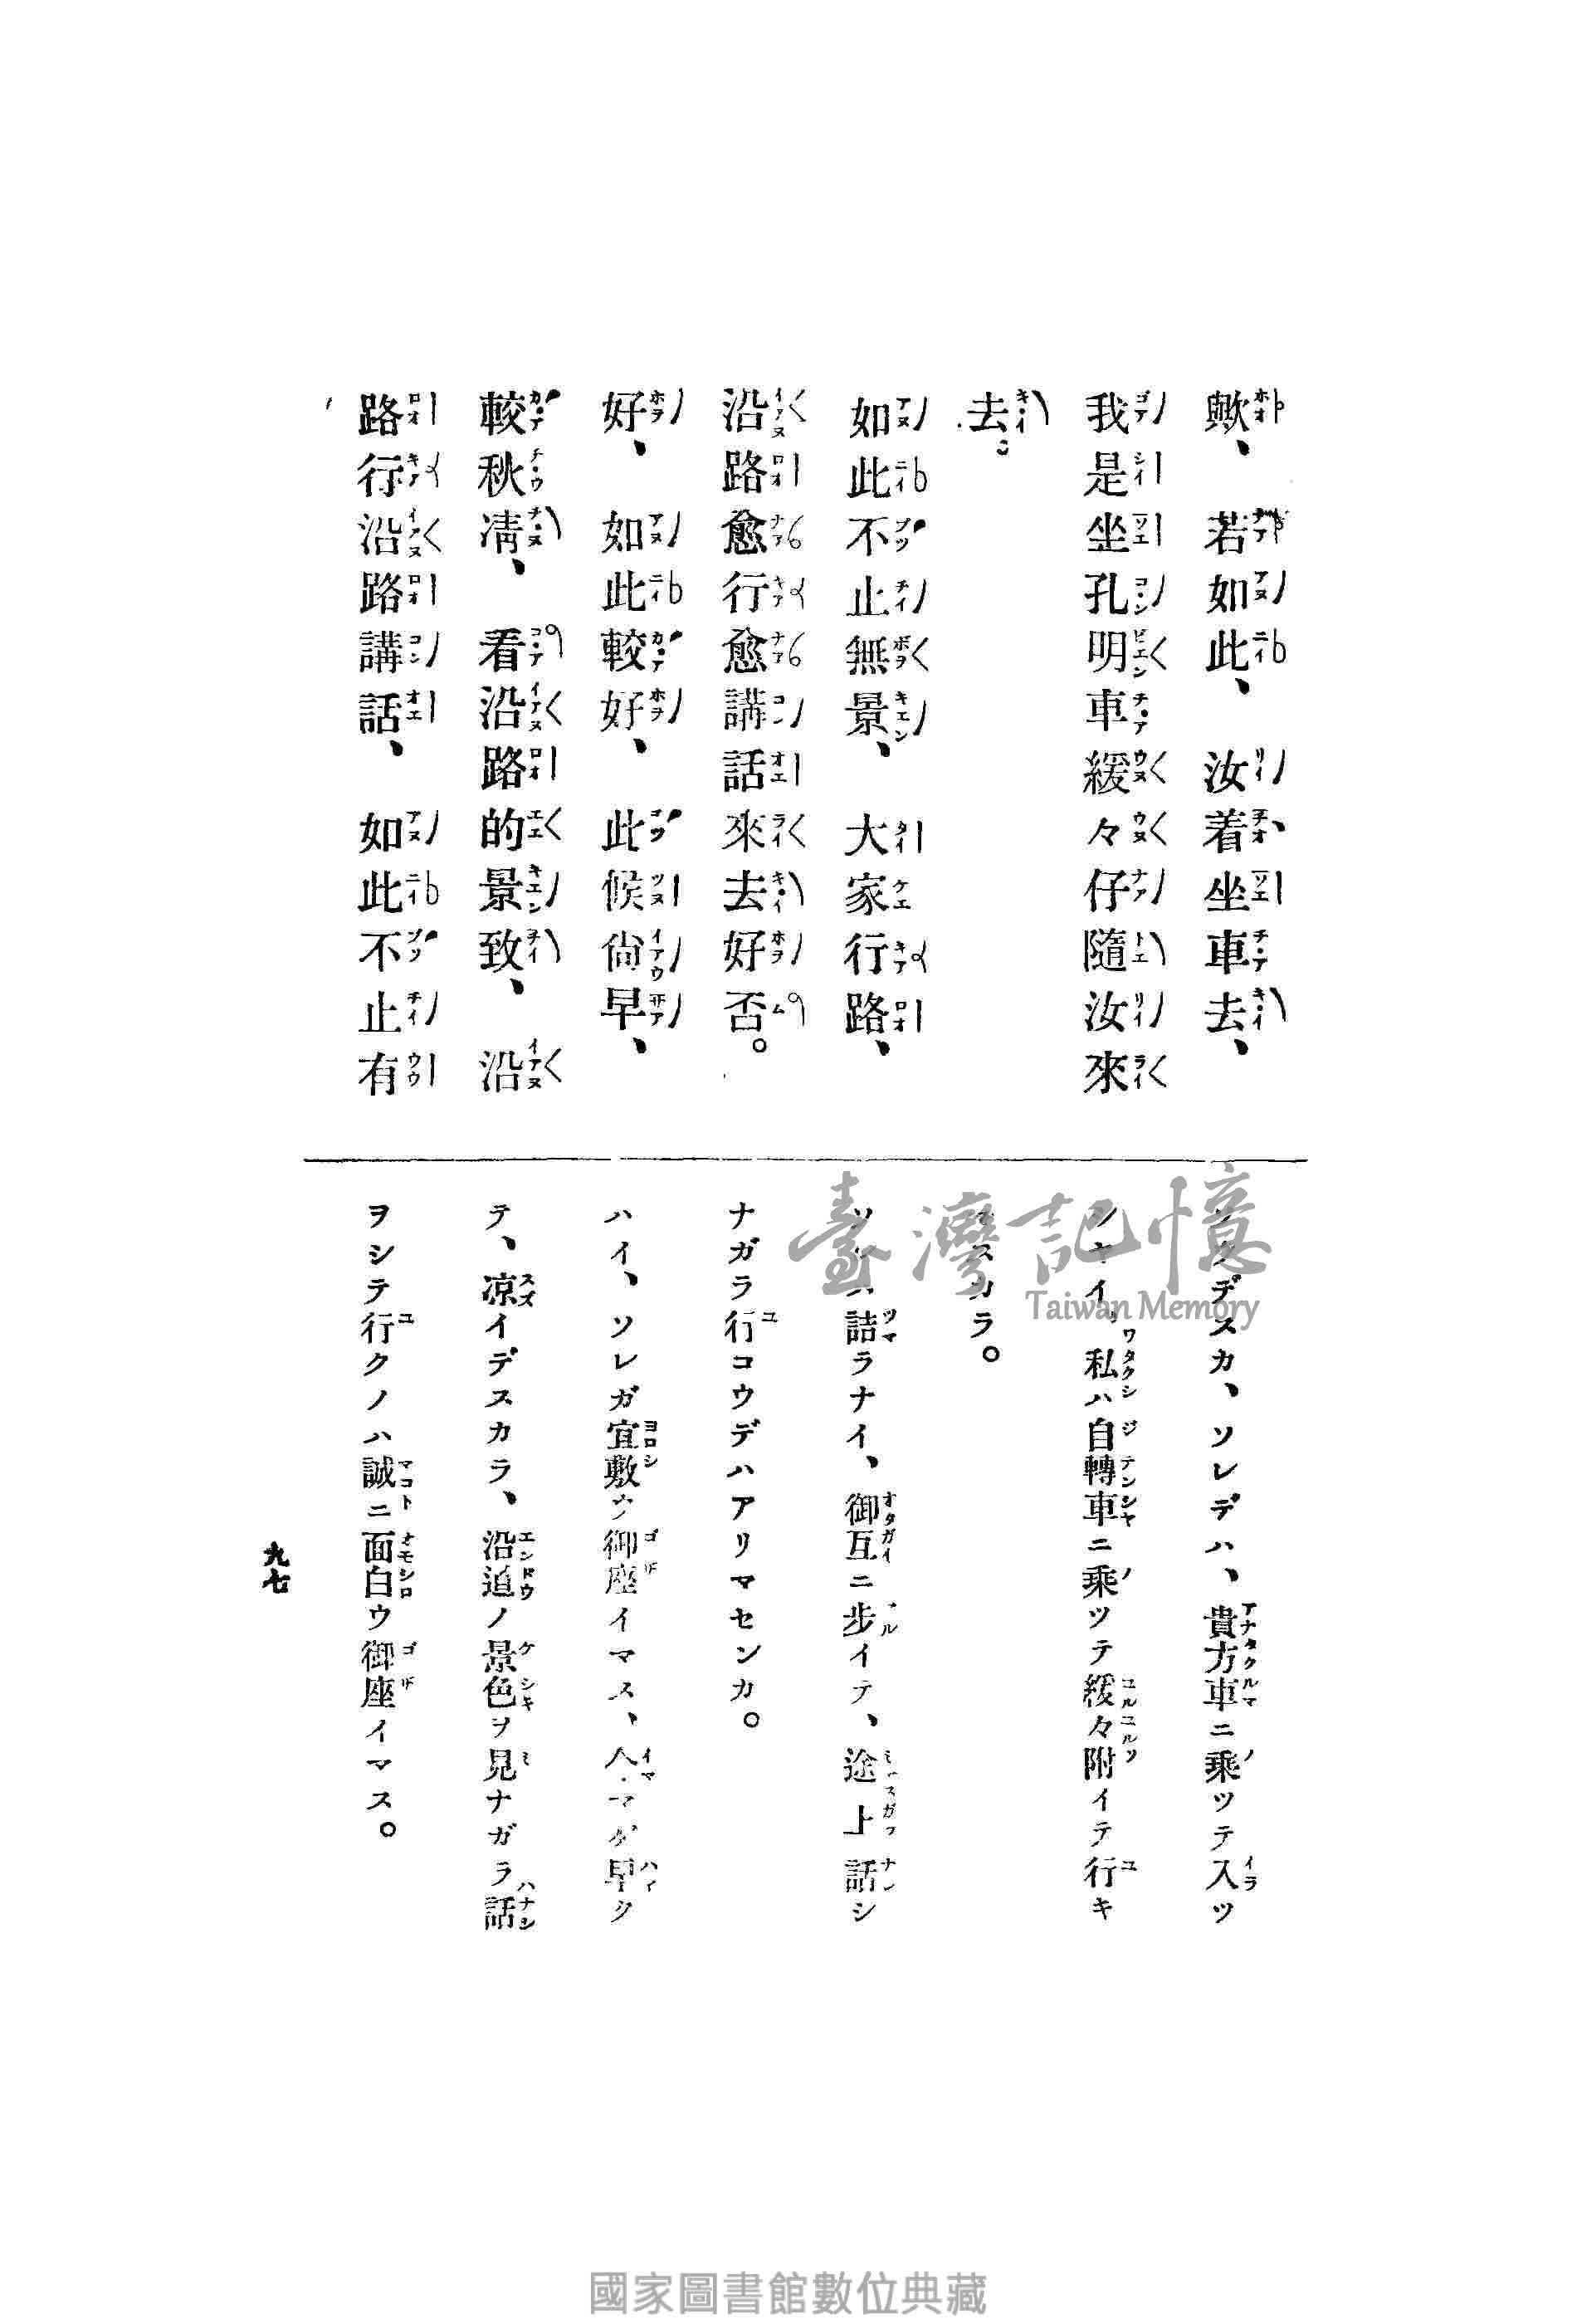 歟、若如此、汝着坐車去、
我是坐孔明車緩々仔隨汝來
去。
如此不止無景、大家行路、
沿路愈行愈講話來去好否。
好、如此較好、此候尙早、
較秋凊、看沿路的景致、沿
路行沿路講話、如此不止有
デスカ、ソレデハ、貴方車ニ乘ツテ入ツ
シヤイ、私ハ自轉車ニ乘ツテ緩々附イテ行キ
マスカラ。
詰ラナイ、御互ニ步イテ、途上話シ
ナガラ行コウデハアリマセンカ。
ハイ、ソレガ宜敷ウ御座イマス、今マダ早ク
テ、凉イデスカラ、沿道ノ景色ヲ見ナガラ話
ヲシテ行クノハ誠ニ面白ウ御座イマス。
九七
臺灣記憶
Taiwan Memory
國家圖書館數位典藏